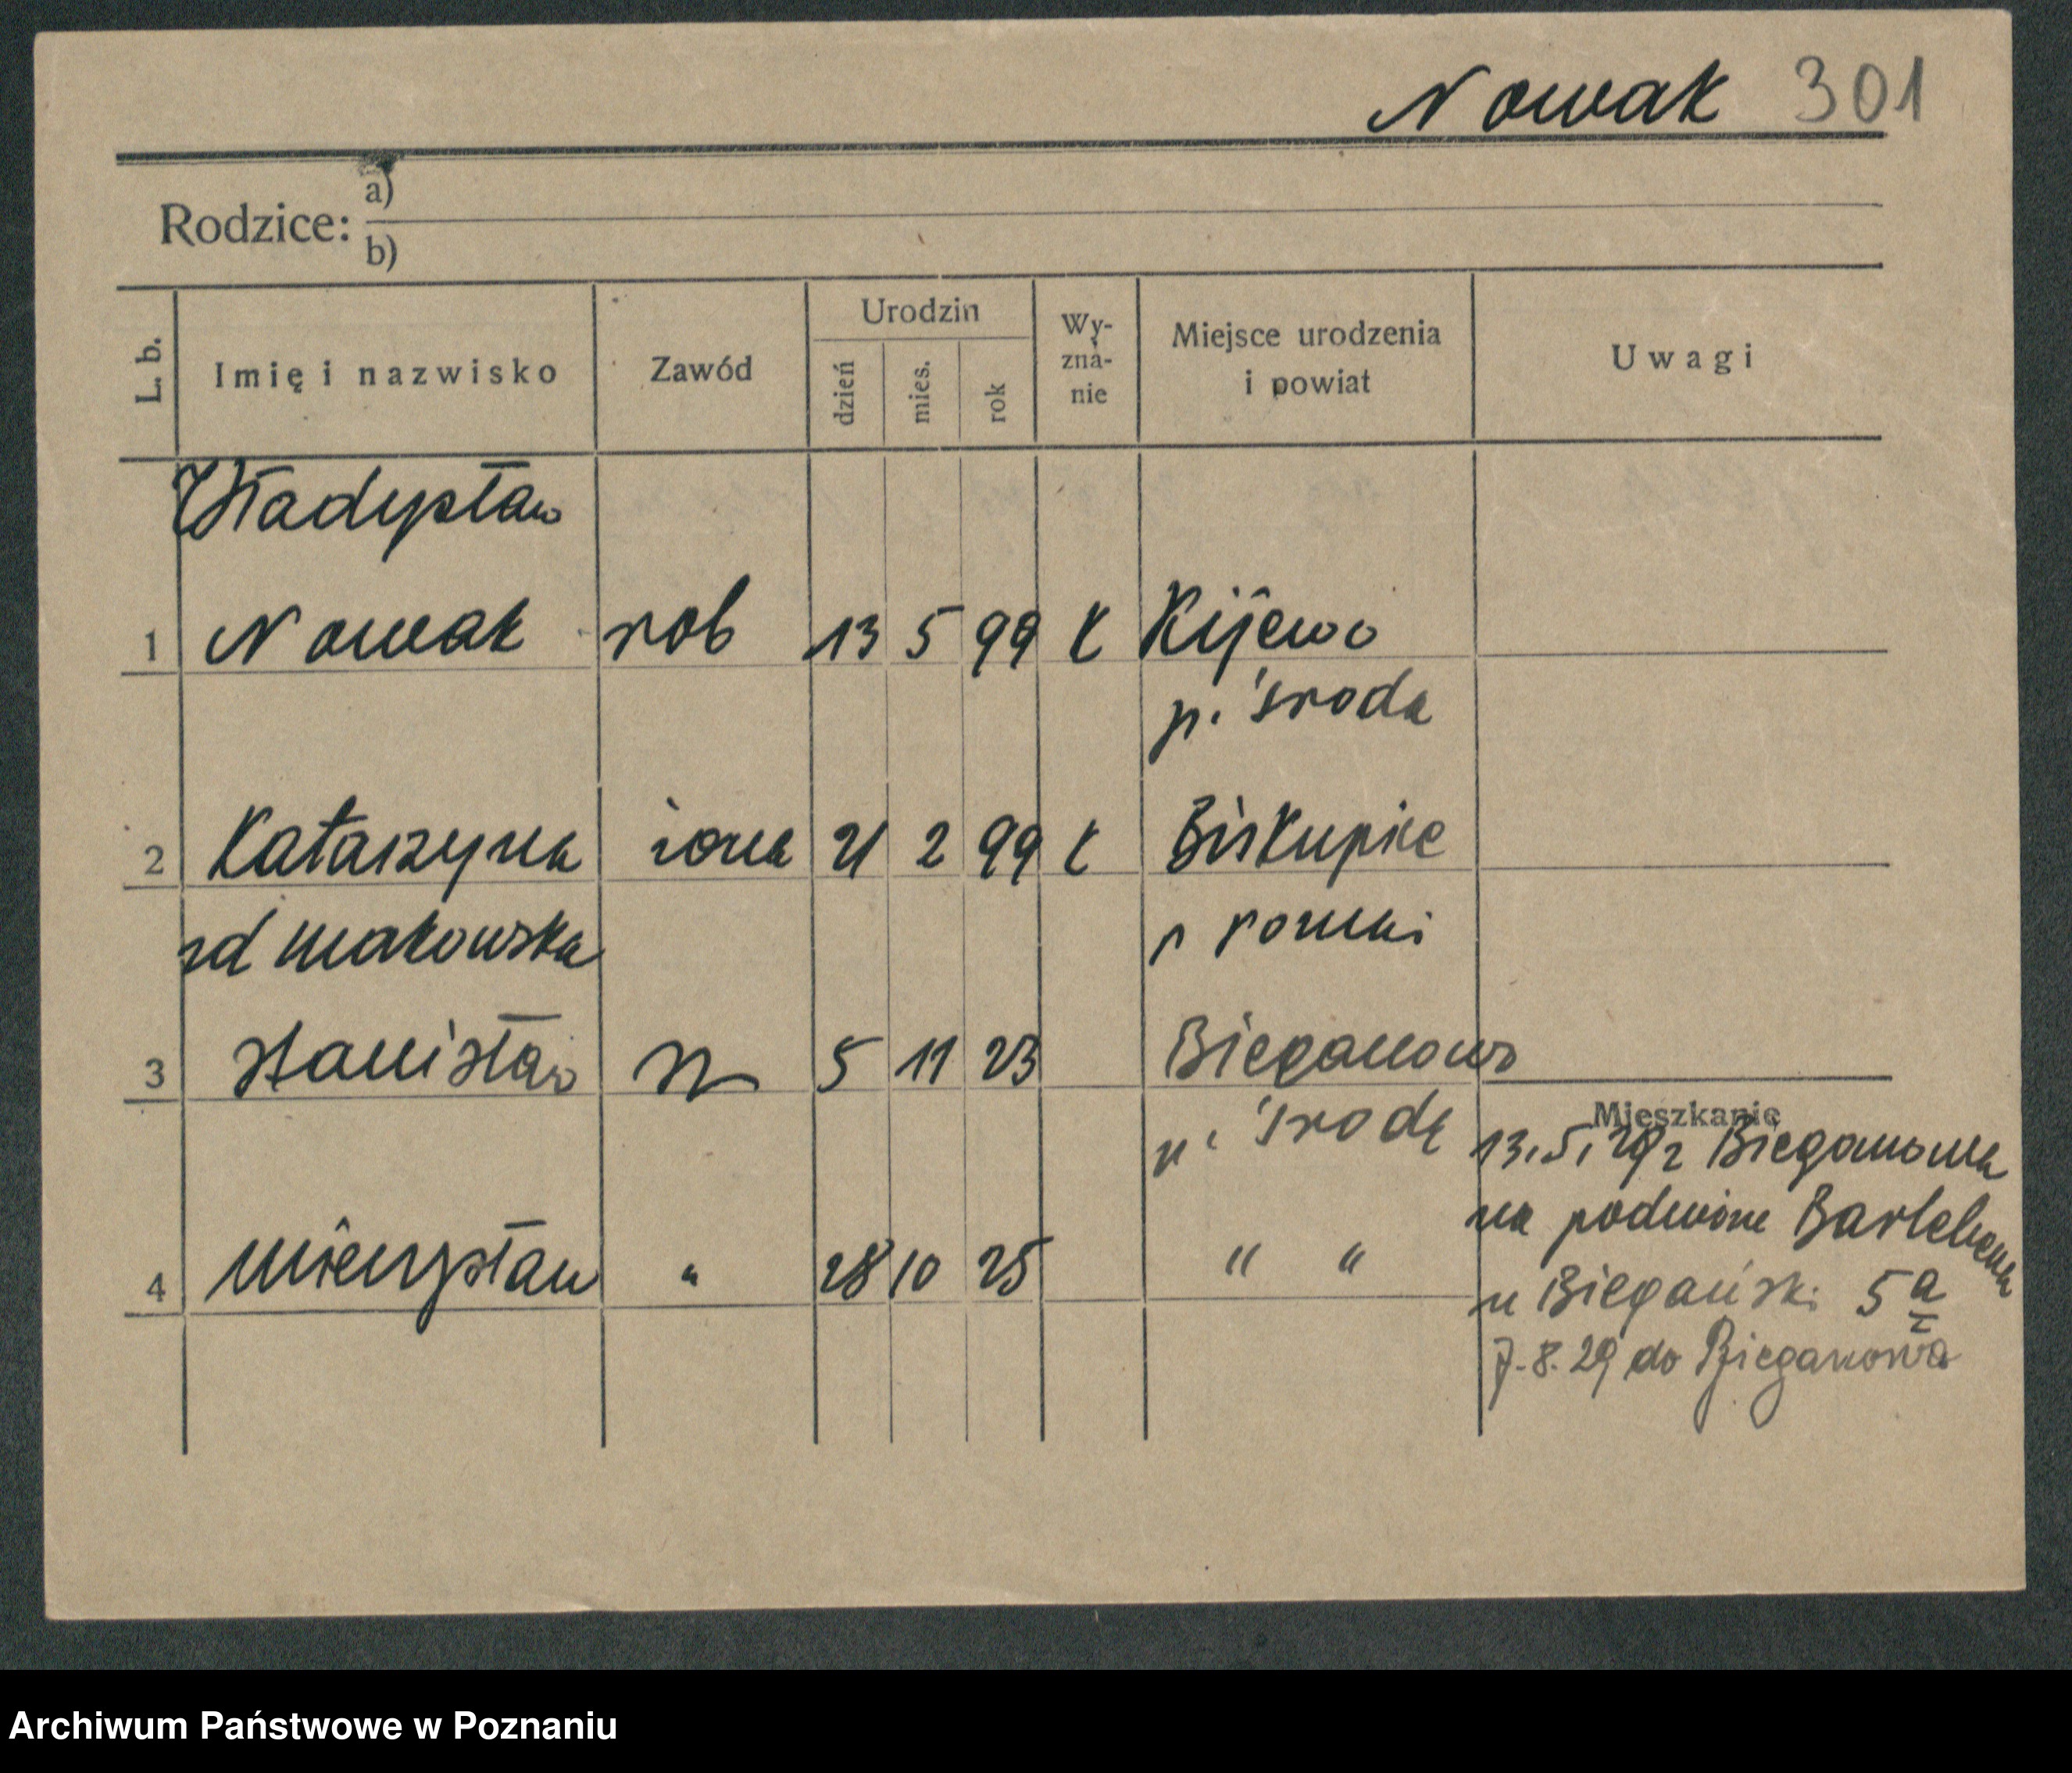 Nowak 301
Rodzice: a)
b)
L. b. Imię i nazwisko Zawód Urodzin dzień mies. rok Wy-zna-nie Miejsce urodzenia i powiat Uwagi
Władysław
1 Nowak rob 13 5 99 k Kijewo
p. Środa
2 Katarzyna żona 21 2 99 k Biskupice
zd Makowska p
3 Stanisław 5 11 23 Bieganowo
p. Środa
Mieszkanie
13.5.29 z Bieganowa
na podwórze
4 Mieczysław " 28 10 25 " "
u Biegański 5a
7.8.29 do Bieganowa
Archiwum Państwowe w Poznaniu